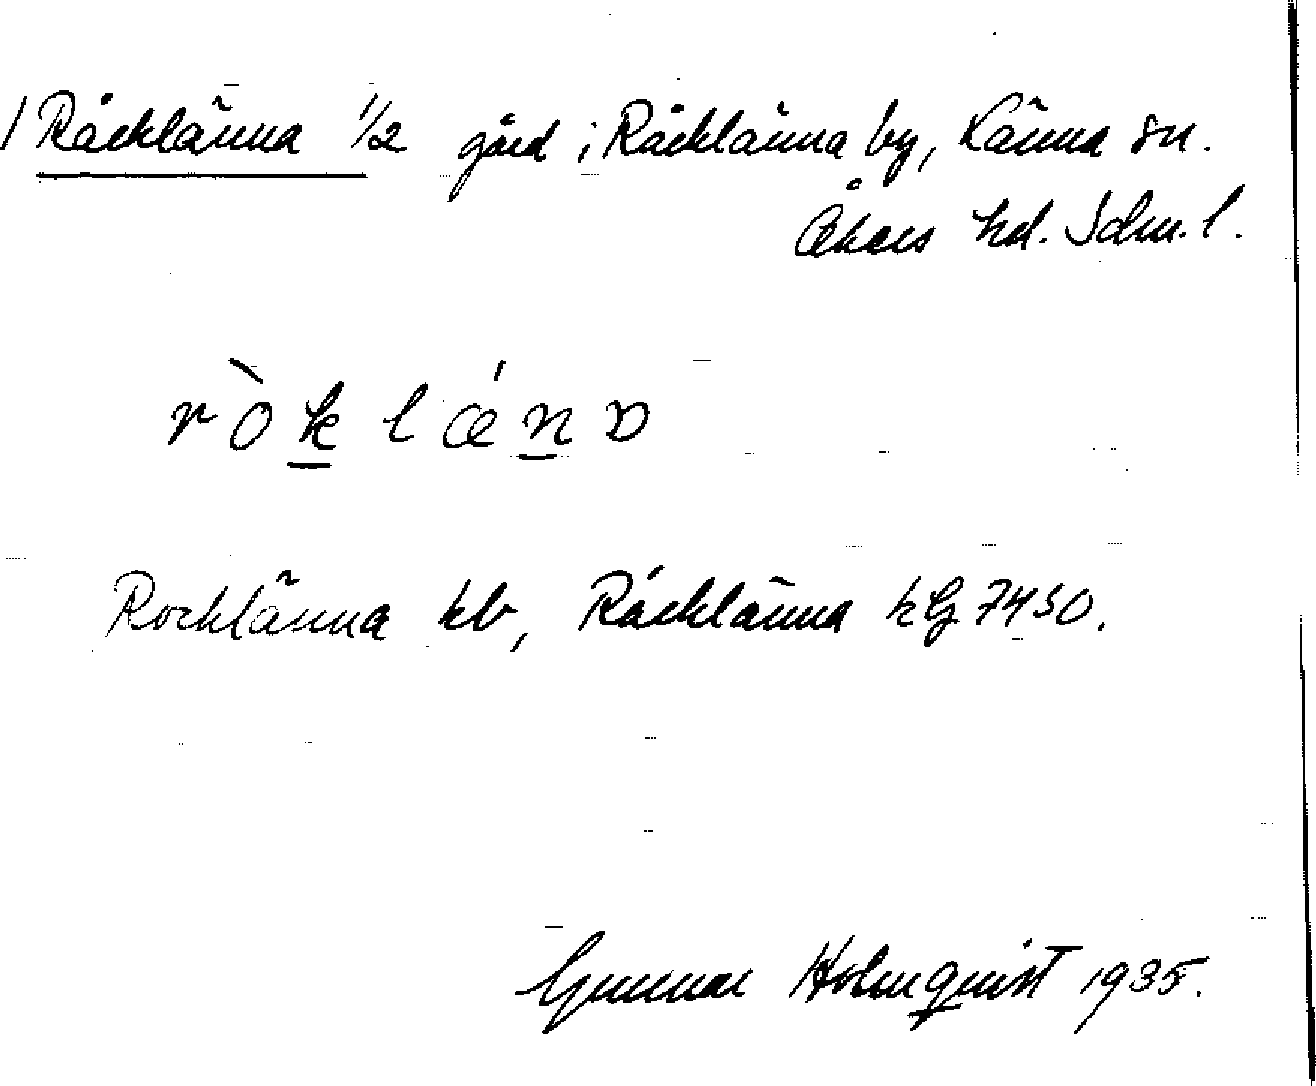 1 Råcklänna 1/2 gård i Råcklänna by, Länna sn.
Åkers hd. Sdm. l.
ròklǽnɒ
Rocklänna kb, Råcklänna kG 7450.
Gunnar Holmquist 1935.